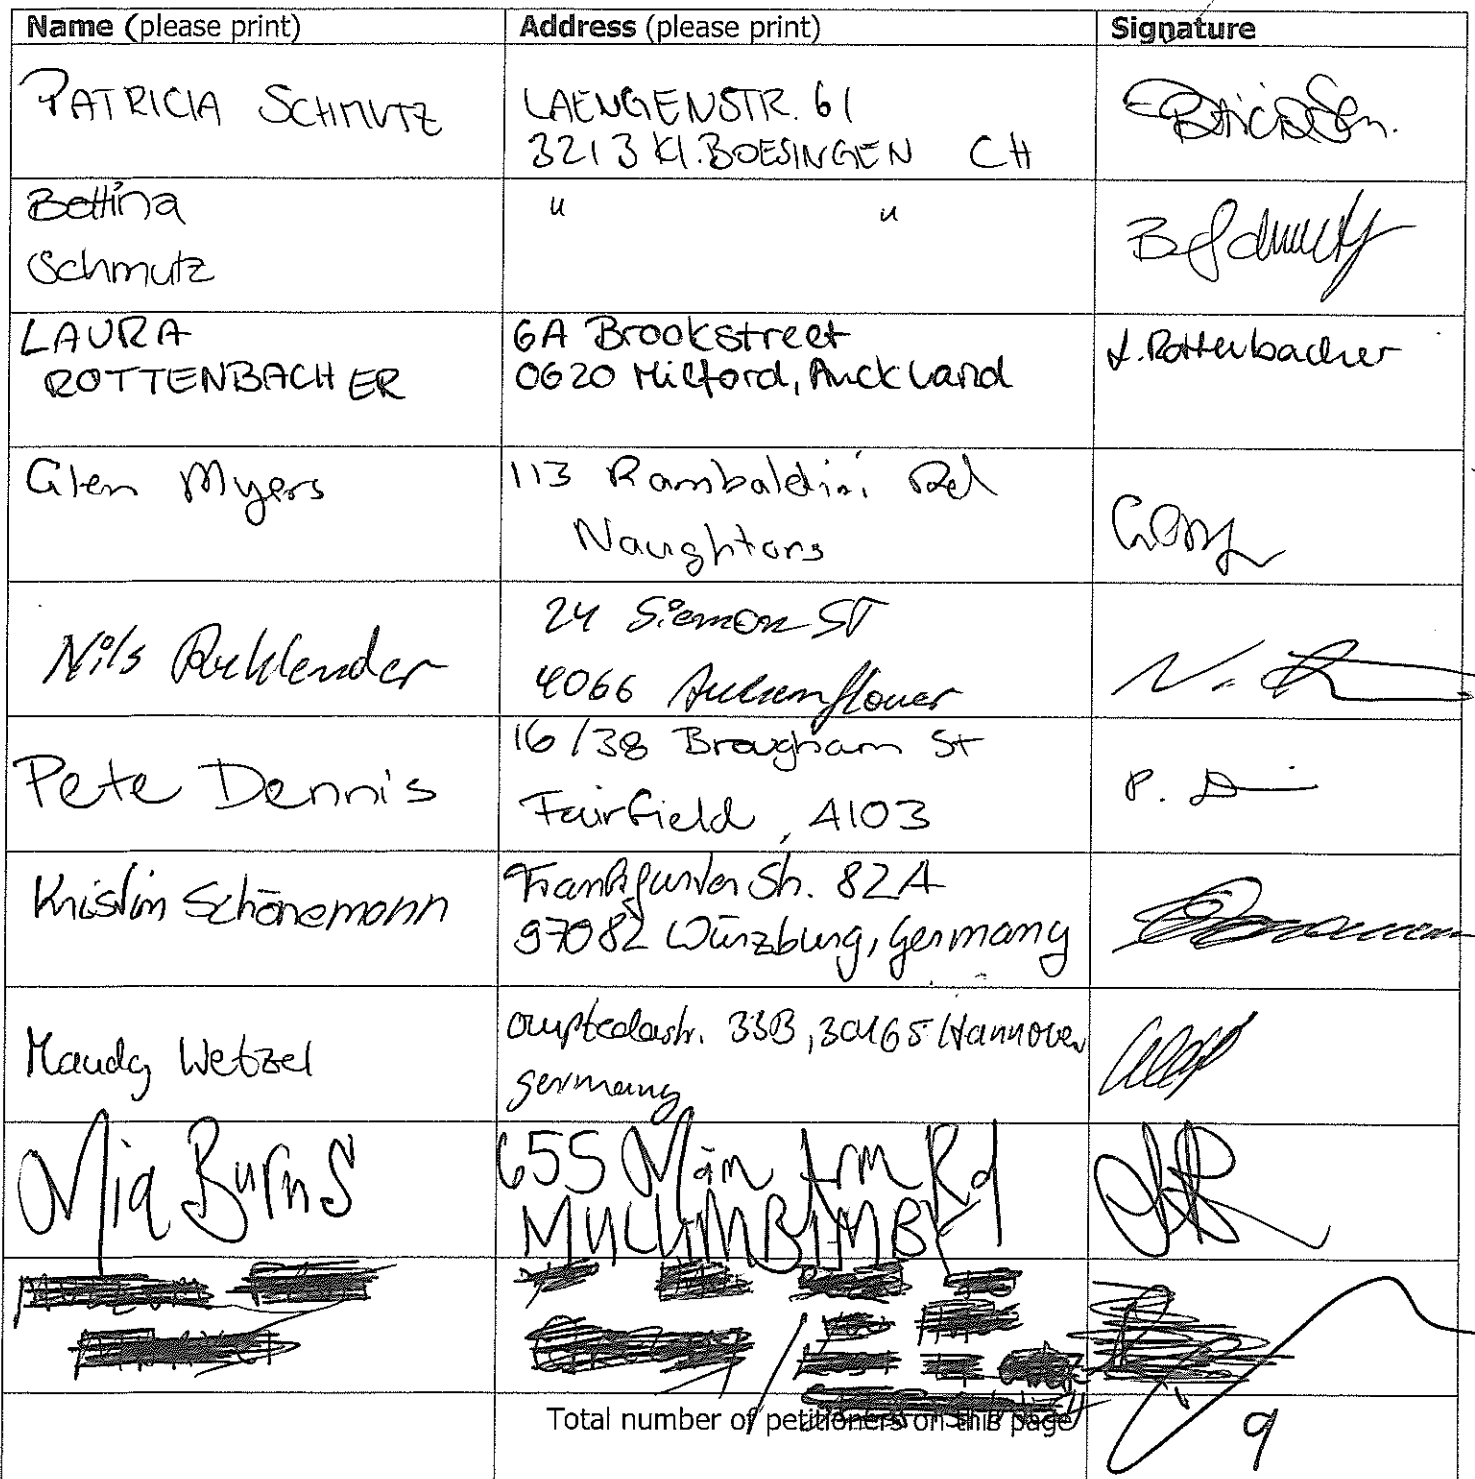 Name (please print) Address (please print) Signature
PATRICIA SCHMUTZ
LAENGENSTR. 61
3213 Kl. BOESINGEN CH
Bettina
Schmutz
" "
B Schmutz
LAURA
ROTTENBACHER
6A Brookstreet
0620 Milford, Auckland
L. Rottenbacher
Glen Myers
113 Rambaldini Rd
Naughtons
Nils
24 Siemon ST
4066
N.
Pete Dennis
16/38 Brougham St
Fairfield, 4103
P. D
Kristin Schönemann
Frankfurter Str. 82A
97082 Würzburg, Germany
Wetzel
33B, 30165 Hannover
germany
Mia Burns
655 Main Arm Rd
MULLUMBIMBY
Total number of petitioners on this page
9